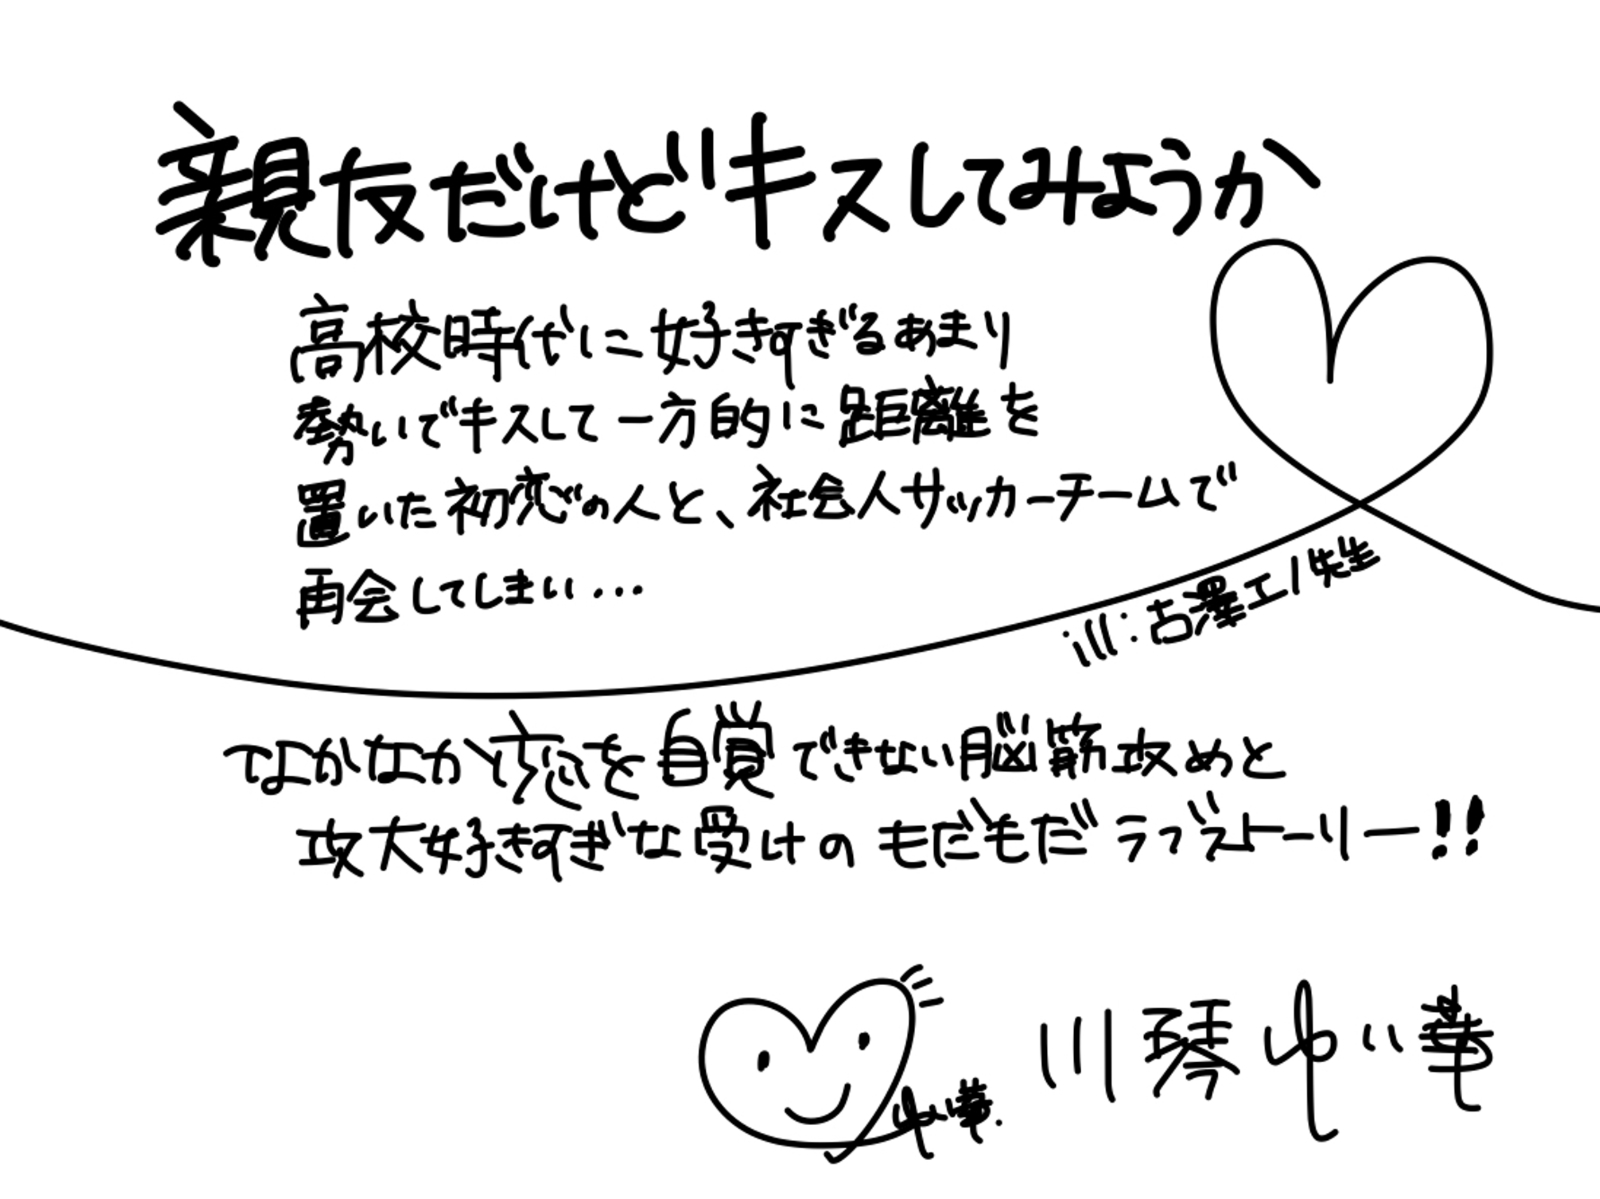 親友だけどキスしてみようか
高校時代に好きすぎるあまり
勢いでキスして一方的に距離を
置いた初恋の人と、社会人サッカーチームで
再会してしまい…
ill:古澤エノ先生
なかなか恋を自覚できない脳筋攻めと
攻大好きすぎな受けのもだもだラブストーリー!!
川琴ゆい華
ゆい華.